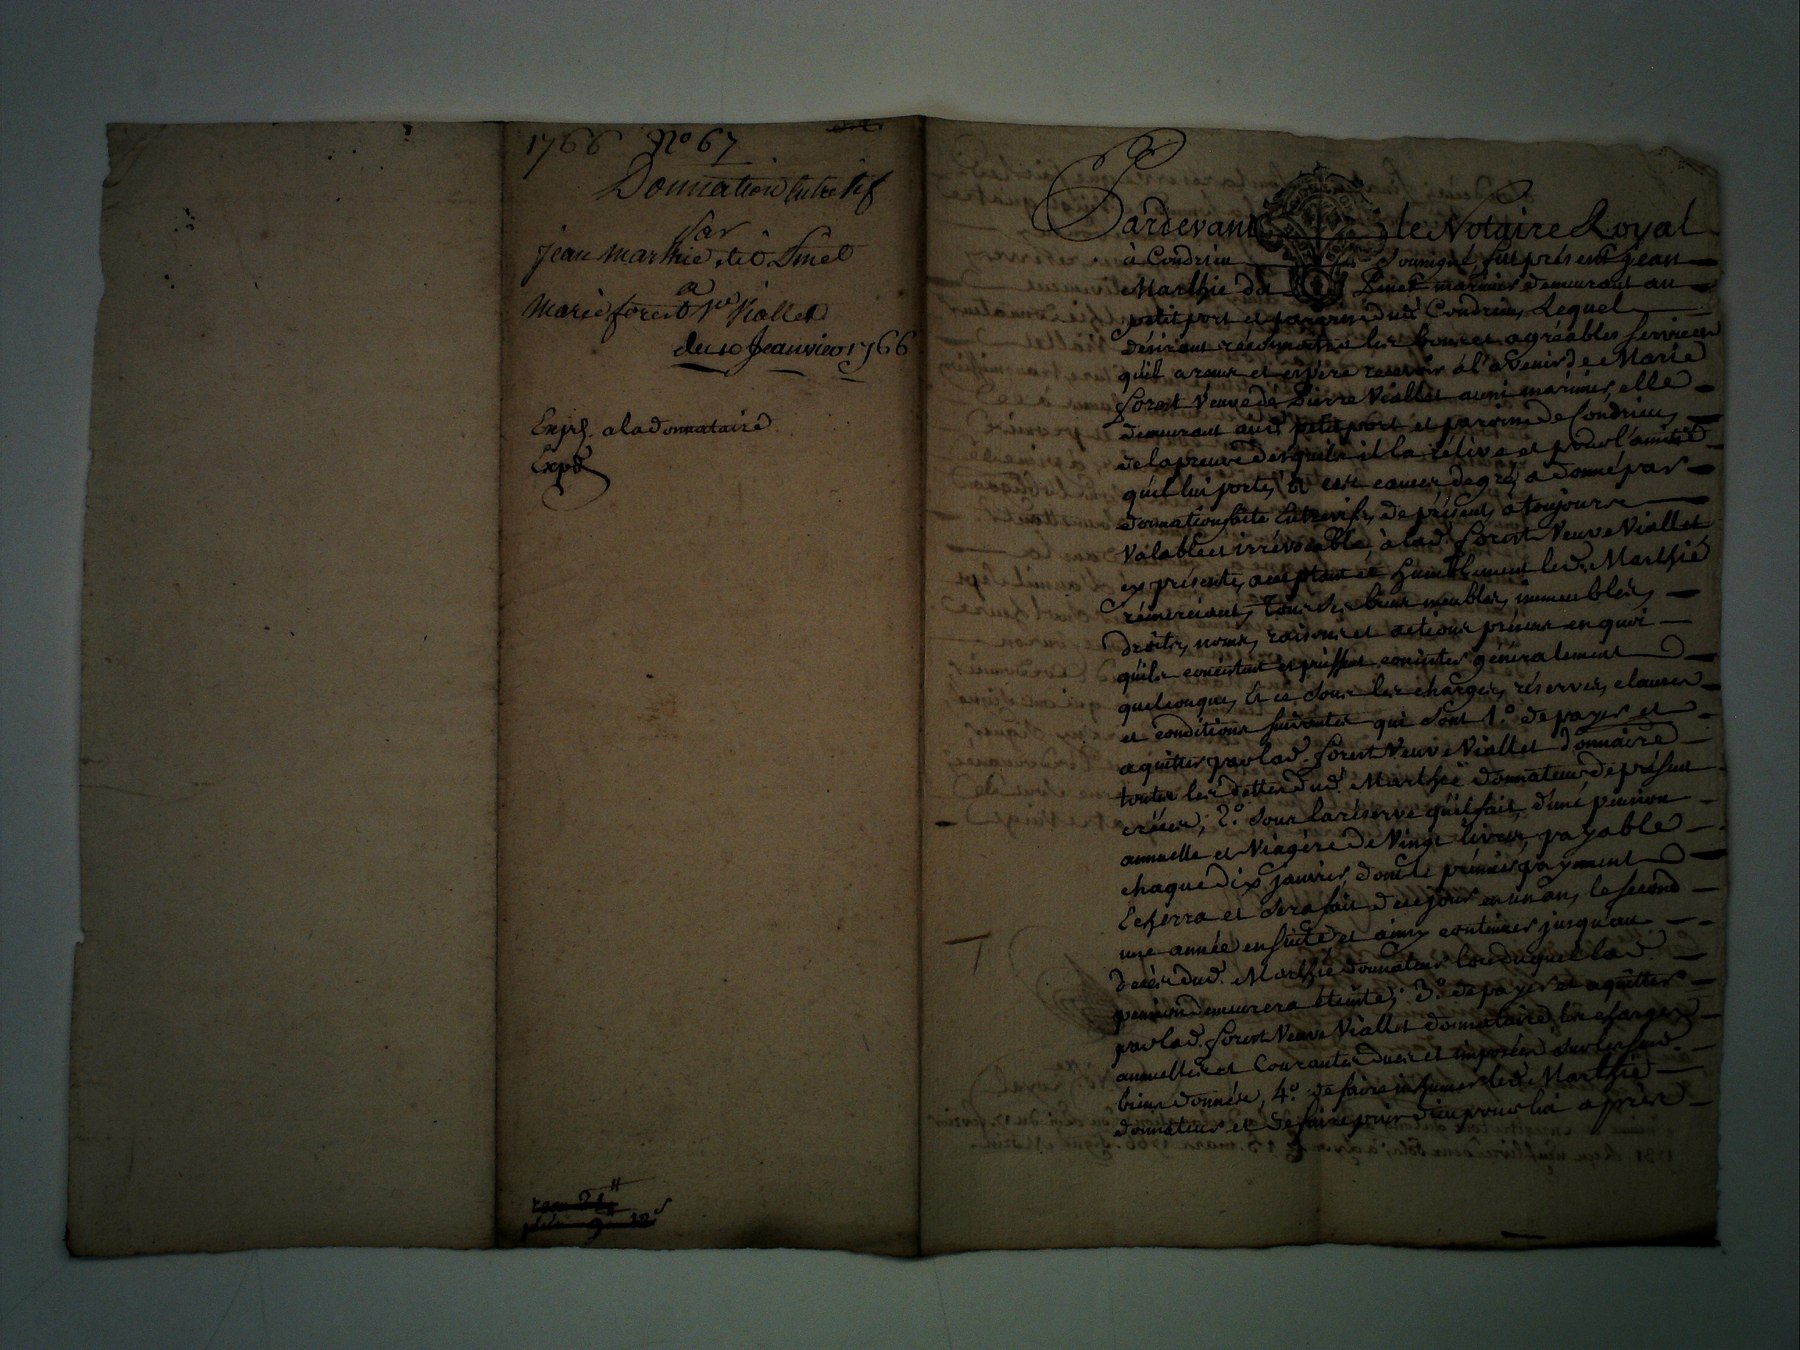 1766 No 67
Donnation Entre Vif
par
jean Marthie dit Pinet
a
Marie forest Ve Viallet
du 10 Jeanvier 1766
Enjrs. a la donnataire
Expd
Pardevant le Notaire Royal
à Condrieu soussigné, fut présent Jean
Marthie dit Pinet marinier demeurant au
petit port et paroisse dud. Condrieu, Lequel
désirant reconnoitre les bons et agréables services
qu'il a reçus et espère recevoir à l'avenir de Marie
forest Veuve de Pierre Viallet aussi marinier, elle
demeurant aud. petit port et paroisse de Condrieu,
de la preuve desquels il la rélève et pour l'amitié
qu'il lui porte, à ces causes de gré, a donné par
donnation faite Entrevifs, de présent, a toujours
Valable et irrévocable, à lad. forest Veuve Viallet
cy présente, acceptant et humblement led. Marthié
rémerciant, Tous ses biens meubles, immeubles,
droits, noms, raisons et actions présens en quoi
qu'ils consistent et puissent consister généralement
quelconques, Et ce sous les charges, réserves, clauses
et conditions suivantes qui sont 1.o de payer et
aquitter par lad. forest Veuve Viallet donnaire
toutes les dettes dud. Marthié donnateur de présent
créées, 2.o sous la réserve qu'il fait, d'une pension
annuelle et Viagère de Vingt livres, payable
chaque dix janvier, dont le premier payement
Echerra et sera fait de ce jour en un an, le second
une année ensuite et ainsy continuer jusqu'au
décès dud. Marthié donnateur lors duquel lad.
pension demeurera éteinte; 3.o de payer et aquitter
par lad. forest Veuve Viallet donnataire les charges
annuelles et Courantes dues et imposées sur lesd.
biens donnés, 4.o de faire inhumer led. Marthié
donnateur et de faire prier dieu pour lui après